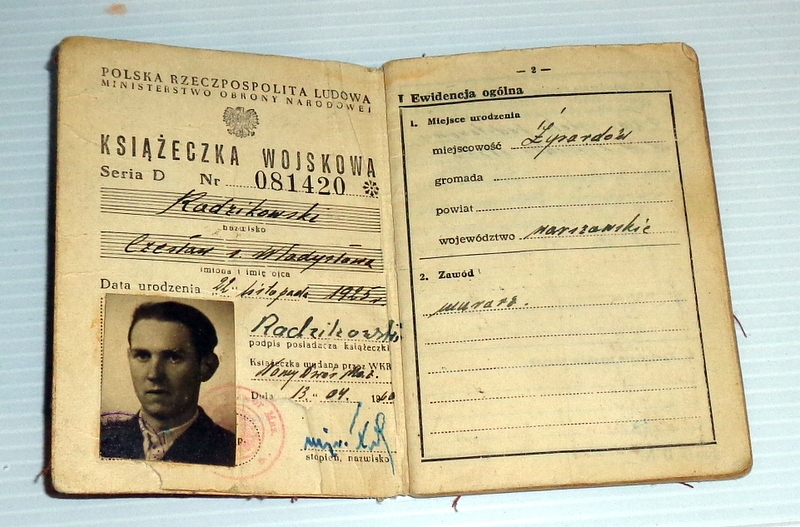 POLSKA RZECZPOSPOLITA LUDOWA
MINISTERSTWO OBRONY NARODOWEJ
KSIĄŻECZKA WOJSKOWA
Seria D Nr 081420
Radzikowski
nazwisko
Czesław s. Władysława
imiona i imię ojca
Data urodzenia 22 listopada 1925 r.
Radzikowski
podpis posiadacza książeczki
Książeczka wydana przez WKR
Nowy Dwór Maz.
Data 13 - 04 1960
p.
mjr.
stopień, nazwisko
— 2 —
I Ewidencja ogólna
1. Miejsce urodzenia
miejscowość Żyrardów
gromada
powiat
województwo warszawskie
2. Zawód
murarz.